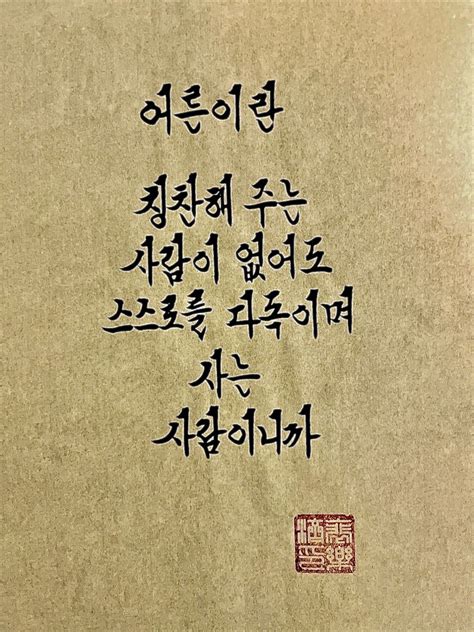 어른이란
칭찬해 주는
사람이 없어도
스스로를 다독이며
사는
사람이니까